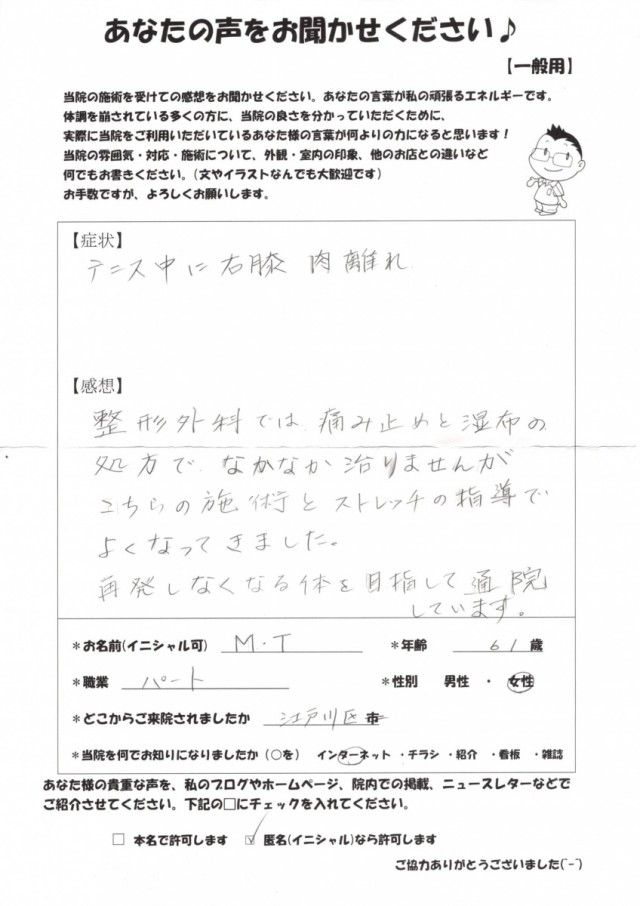 あなたの声をお聞かせください♪
【一般用】
当院の施術を受けての感想をお聞かせください。あなたの言葉が私の頑張るエネルギーです。
体調を崩されている多くの方に、当院の良さを分かっていただくために、
実際に当院をご利用いただいているあなた様の言葉が何よりの力になると思います！
当院の雰囲気・対応・施術について、外観・室内の印象、他のお店との違いなど
何でもお書きください。（文やイラストなんでも大歓迎です）
お手数ですが、よろしくお願いします。
【症状】
テニス中に右膝 肉離れ
【感想】
整形外科では、痛み止めと湿布の
処方で、なかなか治りませんが
こちらの施術とストレッチの指導で
よくなってきました。
再発しなくなる体を目指して通院
しています。
＊お名前(イニシャル可) M・T ＊年齢 61 歳
＊職業 パート ＊性別 男性 ・ 女性
＊どこからご来院されましたか 江戸川区 市
＊当院を何でお知りになりましたか（○を） インターネット ・チラシ ・紹介 ・看板 ・雑誌
あなた様の貴重な声を、私のブログやホームページ、院内での掲載、ニュースレターなどで
ご紹介させてください。下記の□にチェックを入れてください。
□ 本名で許可します ☑ 匿名(イニシャル)なら許可します
ご協力ありがとうございました(^-^)